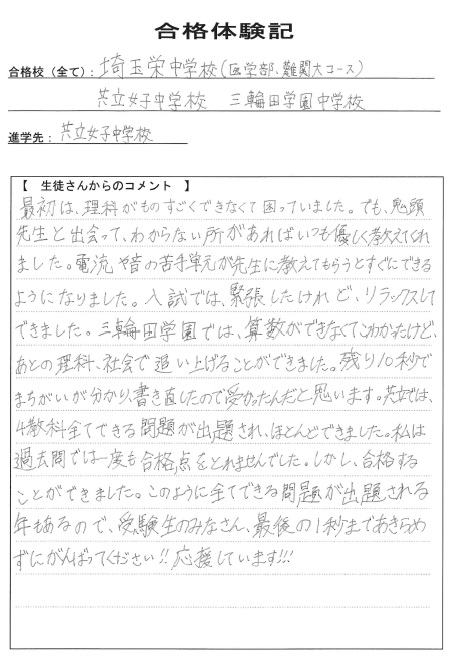 合格体験記
合格校（全て）：埼玉栄中学校（医学部、難関大コース）
共立女子中学校　三輪田学園中学校
進学先：共立女子中学校
【　生徒さんからのコメント　】
最初は、理科がものすごくできなくて困っていました。でも、鬼頭
先生と出会って、わからない所があればいつも優しく教えてくれ
ました。電流や音の苦手単元が先生に教えてもらうとすぐにできる
ようになりました。入試では、緊張したけれど、リラックスして
できました。三輪田学園では、算数ができなくてこわかったけど、
あとの理科、社会で追い上げることができました。残り10秒で
まちがいが分かり、書き直したので受かったんだと思います。共立では、
4教科全てできる問題が出題され、ほとんどできました。私は
過去問では一度も合格点をとれませんでした。しかし、合格する
ことができました。このように全てできる問題が出題される
年もあるので、受験生のみなさん、最後の1秒まであきらめ
ずにがんばってください!!応援しています!!!